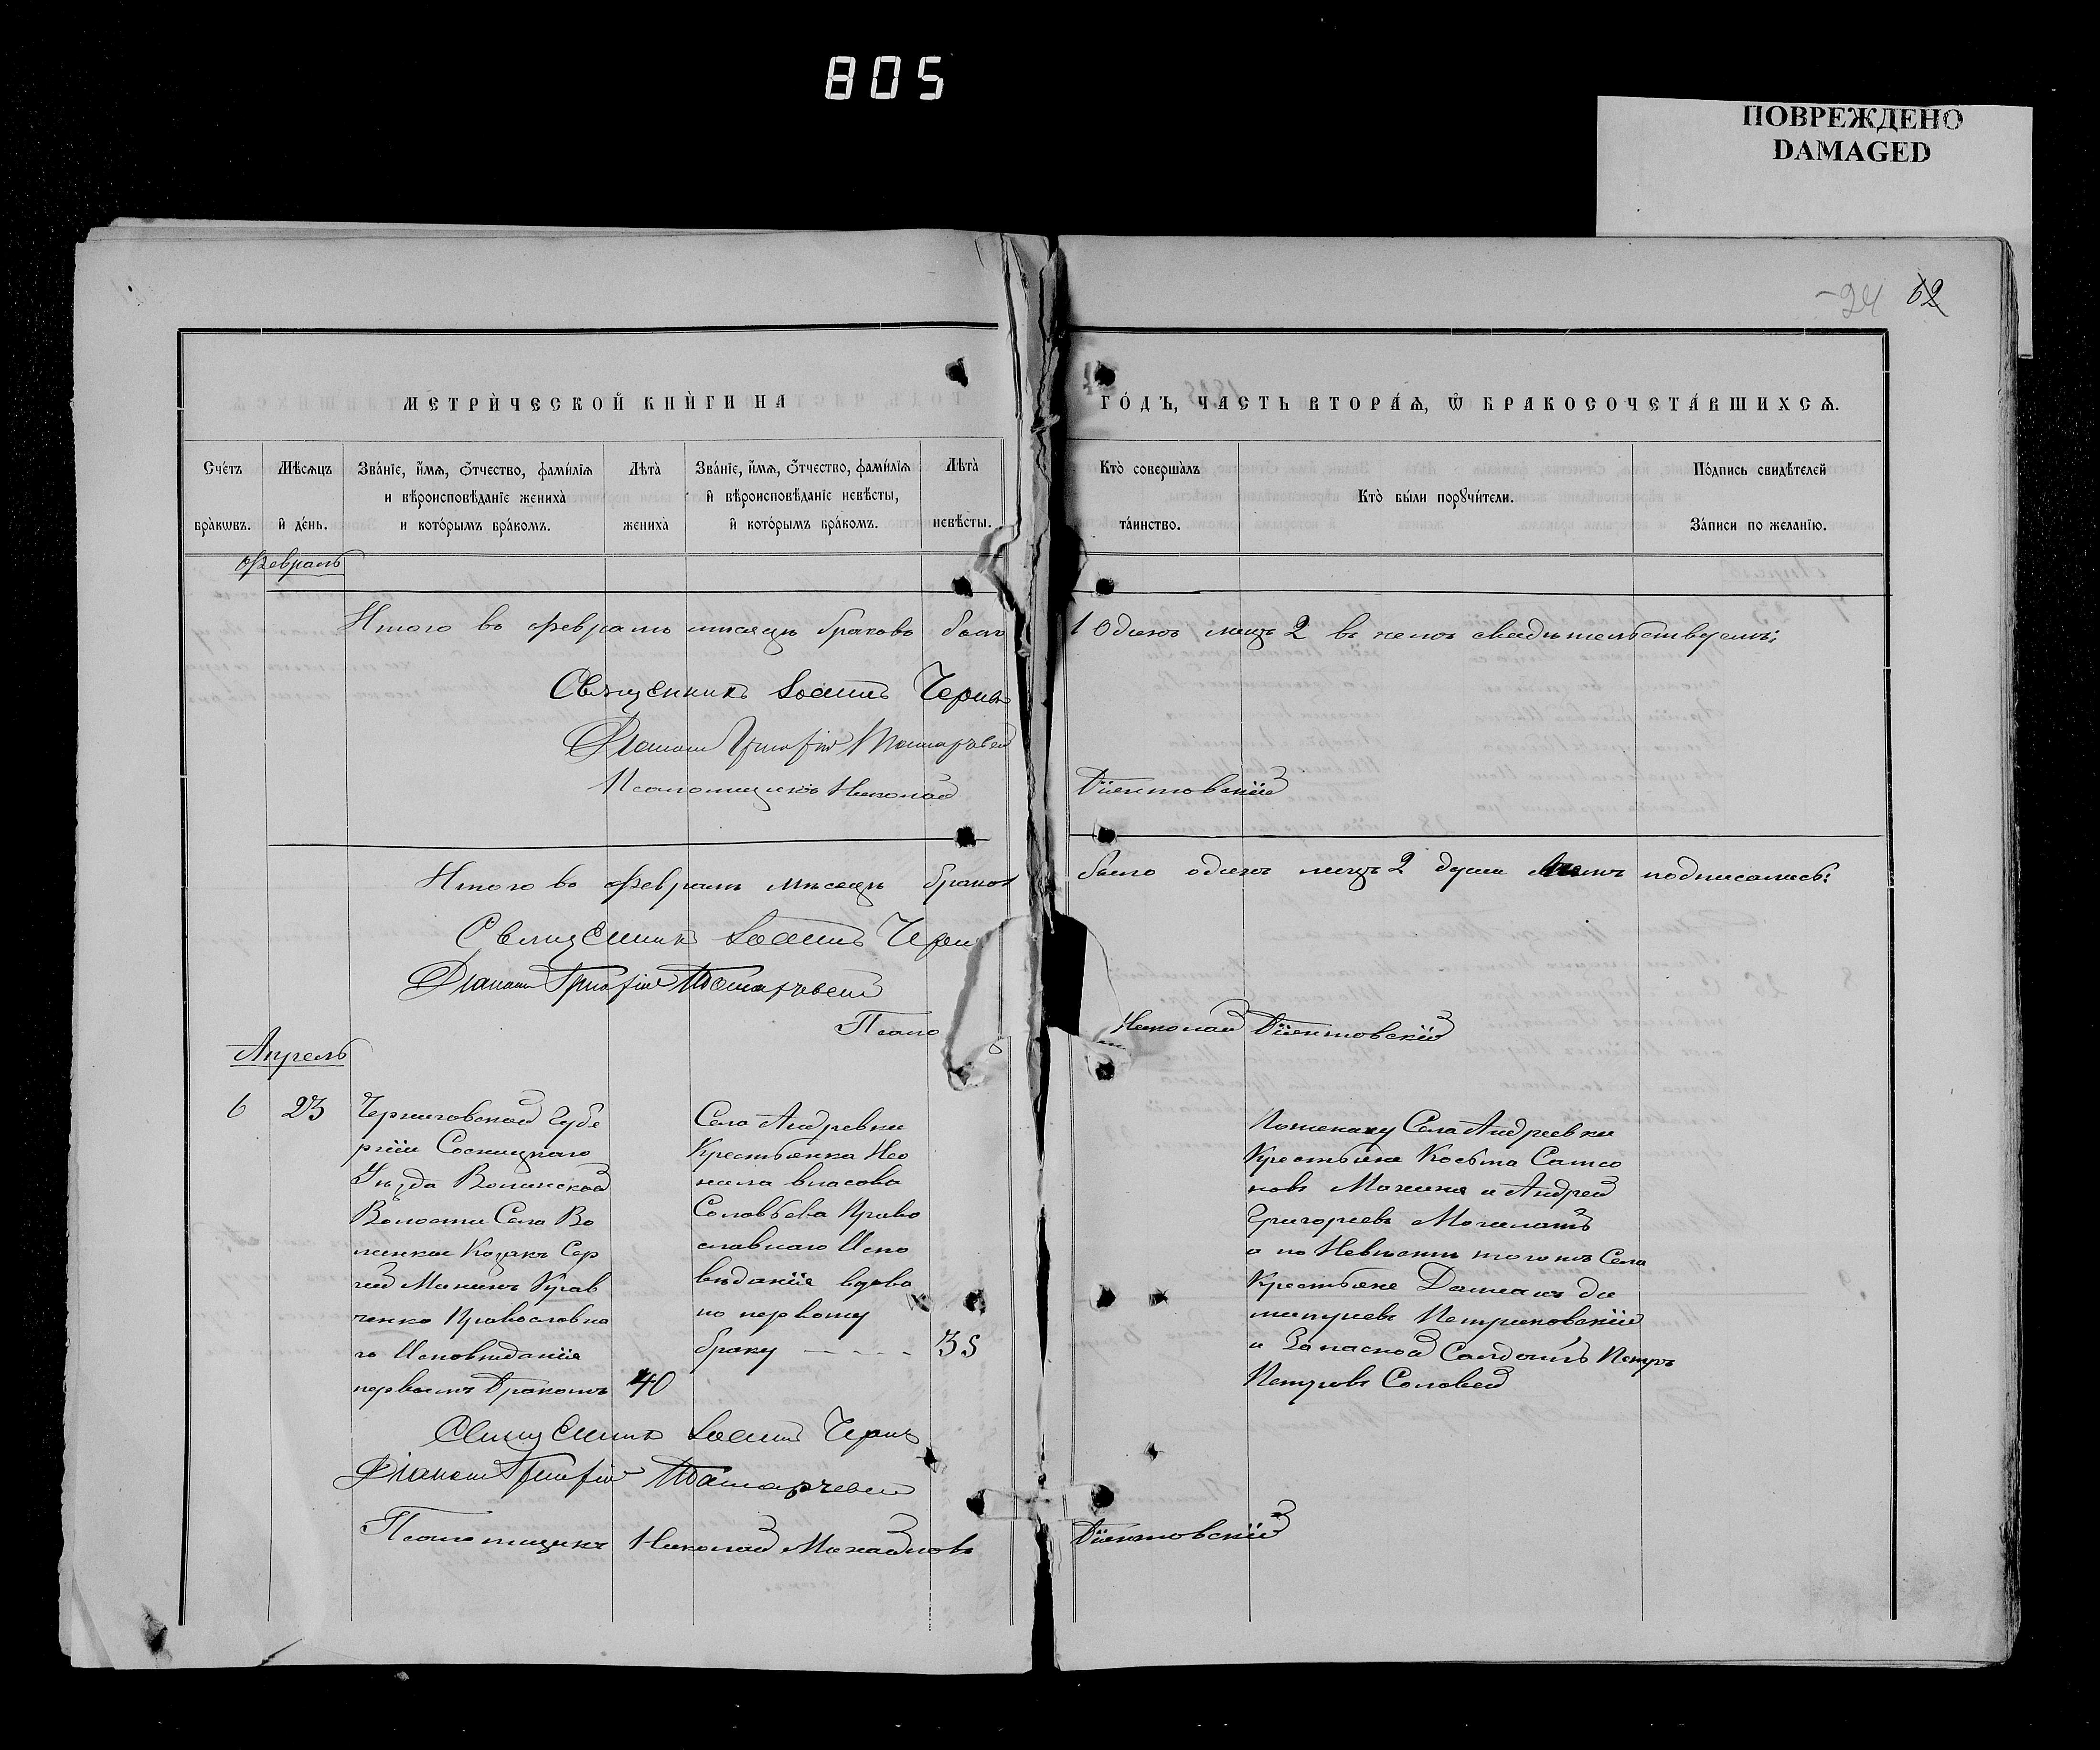 805
ПОВРЕЖДЕНО
DAMAGED
24 62
МЕТРИ́ЧЕСКОЙ КНИ́ГИ НА
ГО́ДЪ, ЧАСТЬ ВТОРА́Ѧ, Ѿ БРАКОСОЧЕТА́ВШИХСѦ.
Сче́тъ бра́кѡвъ.
Мѣ́сѧцъ и҆ де́нь.
Зва́нїе, и҆́мѧ, ѻ҆́тчество, фами́лїѧ и вѣроисповѣ́данїе жениха̀ и кото́рымъ бра́комъ.
Лѣта̀ жениха̀
Зва́нїе, и҆́мѧ, ѻ҆́тчество, фами́лїѧ и҆ вѣроисповѣ́данїе невѣ́сты, и҆ кото́рымъ бра́комъ.
Лѣта̀ невѣ́сты.
Кто̀ соверша́лъ та́инство.
Кто̀ бы́ли порꙋчи́тели.
По́дпись свидѣ́телей За́писи по жела́нїю.
Февраль
Итого во феврале мѣсяце браковъ было 1 Одинъ лицъ 2 въ чемъ свидѣтельствуемъ:
Священникъ Іоаннъ
Діаконъ
Псаломщикъ Николай
Итого во Февралѣ мѣсяцѣ браков было одинъ лицъ 2 души подписались:
Священникъ Іоаннъ
Діаконъ
Псало Николай
Апрель
6 23
Черниговской Губе
рнїи Сосницкаго
Уѣзда Волынской
Волости Села Во
лынки Козакъ Сер
гей Кирав
ченко Православна
го Исповѣданїя
первымъ бракомъ 40
Села Андревки
Крестьянка Нео
нила Власова
Соловьева Право
славнаго Испо
вѣданїя вдова
по первому
браку - - - - 35
По жениху Села Андреевки
Крестьяне Косьма Самсо
новъ и Андрей
Григорьевъ
а по Невѣсте того жъ Села
Крестьяне Дамианъ Ди
митриевъ Петриковскїй
и Запасной Солдатъ Петръ
Петровъ Соловей
Священникъ Іоаннъ
Діаконъ
Псаломщикъ Николай Михайловъ